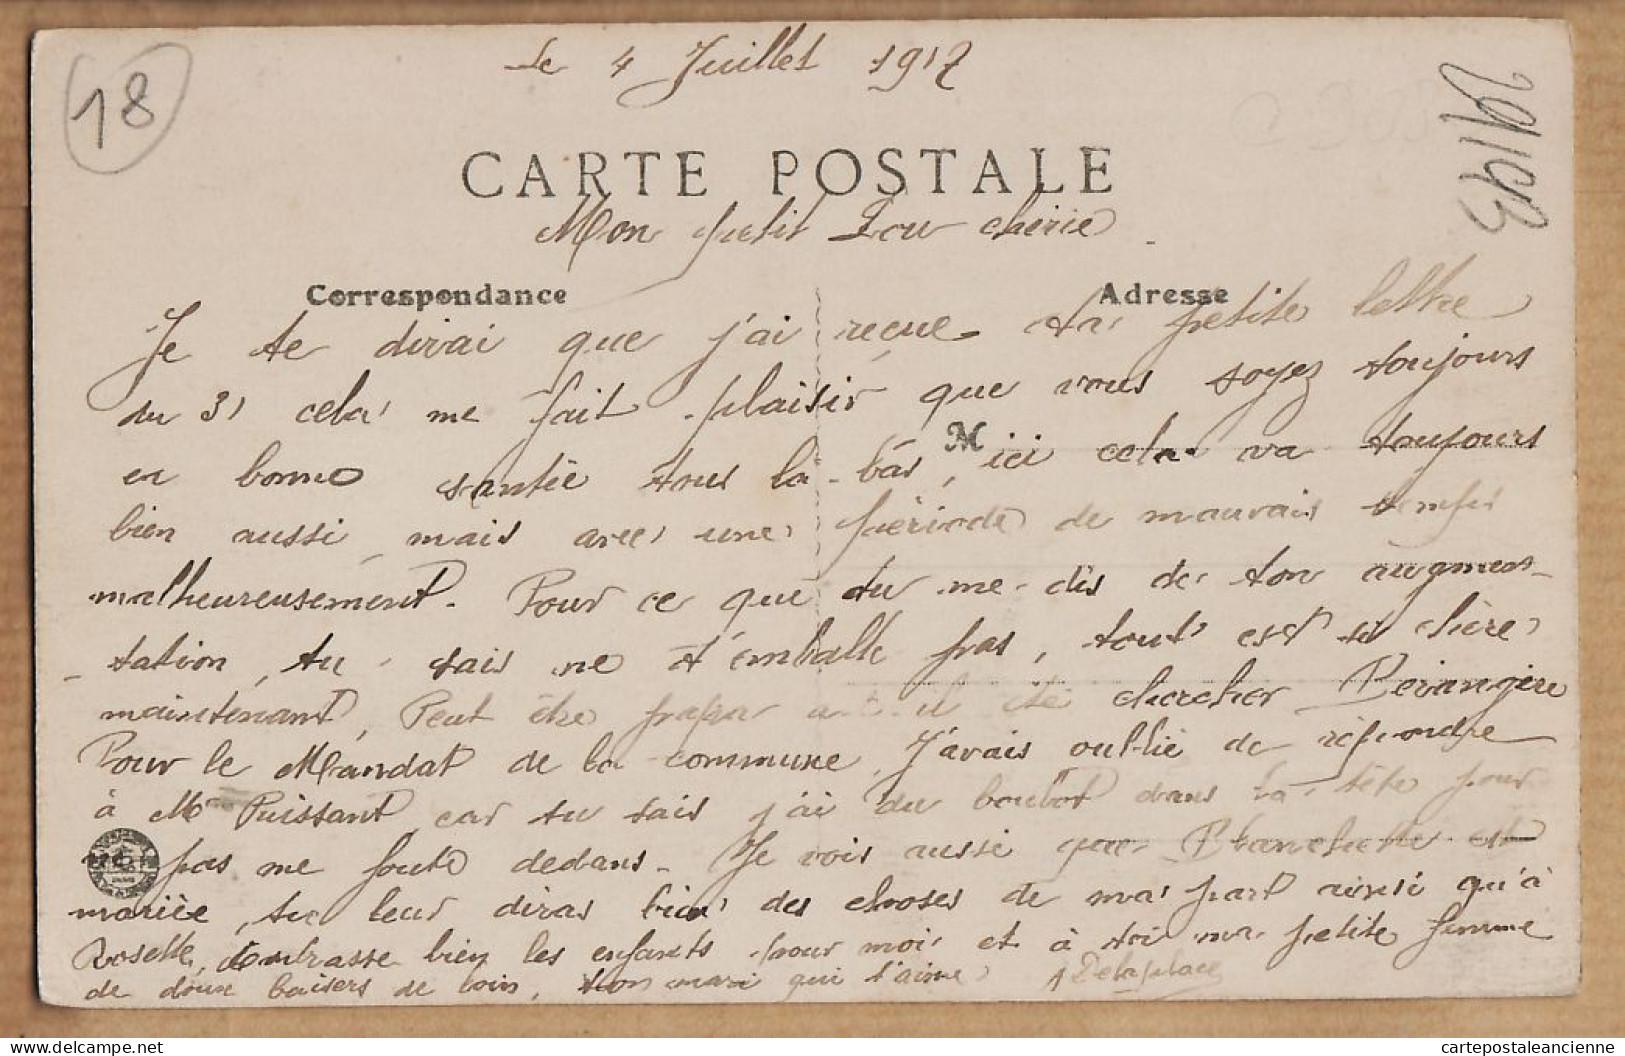 18
Le 4 Juillet 1917
29193
CARTE POSTALE
Mon petit Lou chérie
Correspondance
Adresse
Je te dirai que j'ai reçue ta petite lettre
du 31 cela me fait plaisir que vous soyez toujours
en bonne santée tous la-bas, ici cela va toujours
M
bien aussi, mais avec une période de mauvais temps
malheureusement. Pour ce que tu me dis de ton augmen-
-tation, tu sais ne t'emballe pas, tout est si chère
maintenant, Peut être papa a-t-il été chercher Bérangère
Pour le Mandat de la commune, J'avais oublié de répondre
à Mr Puissant car tu sais j'ai du boulot dans la tête pour
pas me foute dedans. Je vois aussi que Blanchette est
mariée, tu leur diras bien des choses de ma part ainsi qu'à
Rosette, embrasse bien les enfants pour moi et à toi ma petite femme
de doux baisers de loin, ton mari qui t'aime Delaplace
delcampe.net
cartepostaleancienne